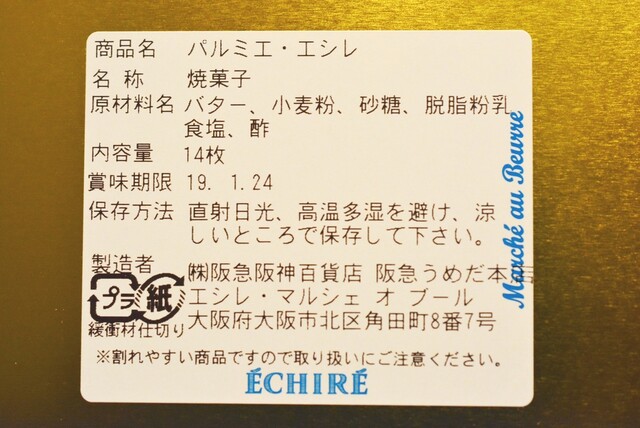 商品名 パルミエ・エシレ
名 称 焼菓子
原材料名 バター、小麦粉、砂糖、脱脂粉乳
食塩、酢
内容量 14枚
賞味期限 19. 1.24
保存方法 直射日光、高温多湿を避け、涼
しいところで保存して下さい。
製造者 ㈱阪急阪神百貨店 阪急うめだ本店
エシレ・マルシェ オ ブール
大阪府大阪市北区角田町8番7号
プラ 紙
緩衝材仕切り
※割れやすい商品ですので取り扱いにご注意ください。
ÉCHIRÉ
Marché au Beurre